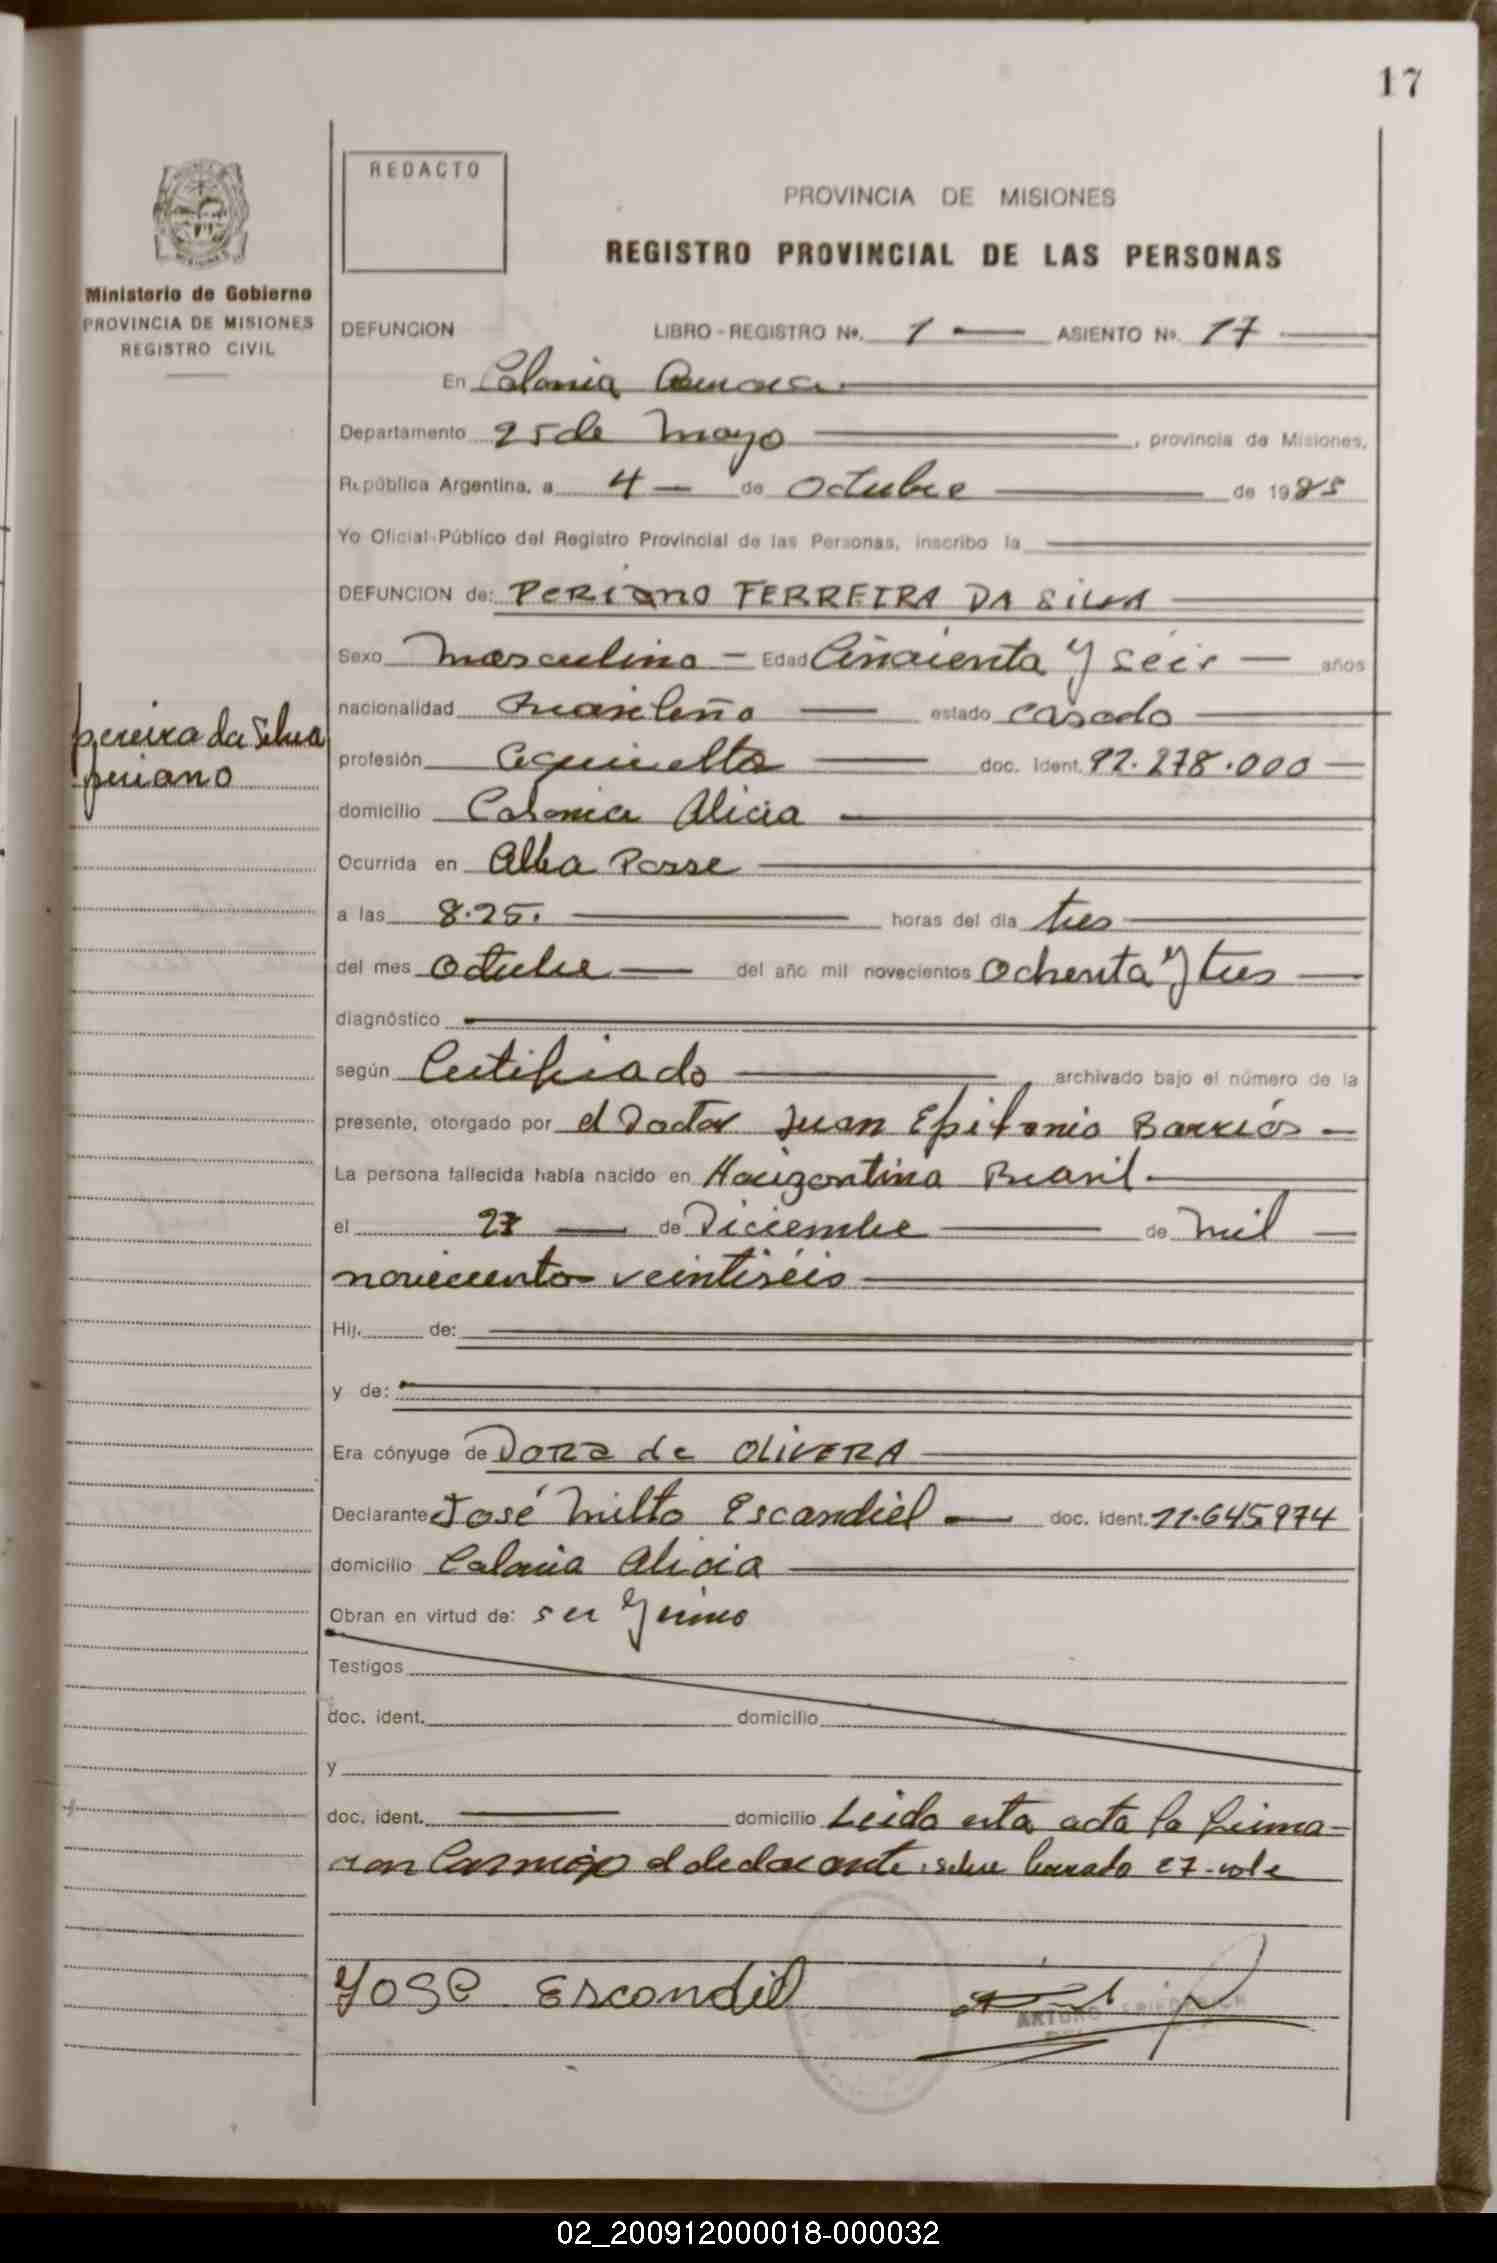 17
REDACTO
PROVINCIA DE MISIONES
REGISTRO PROVINCIAL DE LAS PERSONAS
Ministerio de Gobierno
PROVINCIA DE MISIONES
REGISTRO CIVIL
DEFUNCION LIBRO - REGISTRO Nº. 1 ASIENTO Nº. 17
En Colonia Aurora
Departamento 25 de Mayo, provincia de Misiones,
República Argentina, a 4 de Octubre de 1985
Yo Oficial Público del Registro Provincial de las Personas, inscribo la
DEFUNCION de: PERIANO FERREIRA DA SILVA
Sexo Masculino - Edad Cincuenta y seis - años
pereira da Silva
periano
nacionalidad Brasileño estado casado
profesión doc. ident. 92.278.000
domicilio Colonia Alicia
Ocurrida en Alba Posse
a las 8.25. horas del día tres
del mes Octubre del año mil novecientos Ochenta y tres
diagnóstico
según Certificado, archivado bajo el número de la
presente, otorgado por el Doctor Juan Epifanio Barrios
La persona fallecida había nacido en Horizontina Brasil
el 27 de Diciembre de mil
novecientos veintiséis
Hij. de:
y de:
Era cónyuge de DORA de OLIVERA
Declarante José Milto Escandiel doc. ident. 11.645974
domicilio Colonia Alicia
Obran en virtud de: ser Yerno
Testigos
doc. ident. domicilio
y
doc. ident. domicilio Leida esta acta la firma-
ron Conmigo el declarante. sobre borrado 27-vale
YOSE Escondil
ARTURO FRIEDERICH
02_200912000018-000032